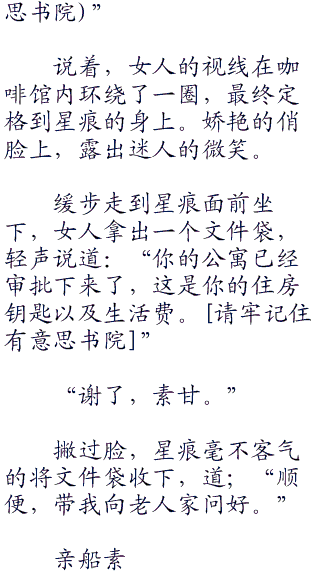 思书院)”
说着，女人的视线在咖
啡馆内环绕了一圈，最终定
格到星痕的身上。娇艳的俏
脸上，露出迷人的微笑。
缓步走到星痕面前坐
下，女人拿出一个文件袋，
轻声说道：“你的公寓已经
审批下来了，这是你的住房
钥匙以及生活费。[请牢记住
有意思书院]”
“谢了，素甘。”
撇过脸，星痕毫不客气
的将文件袋收下，道；“顺
便，带我向老人家问好。”
亲船素